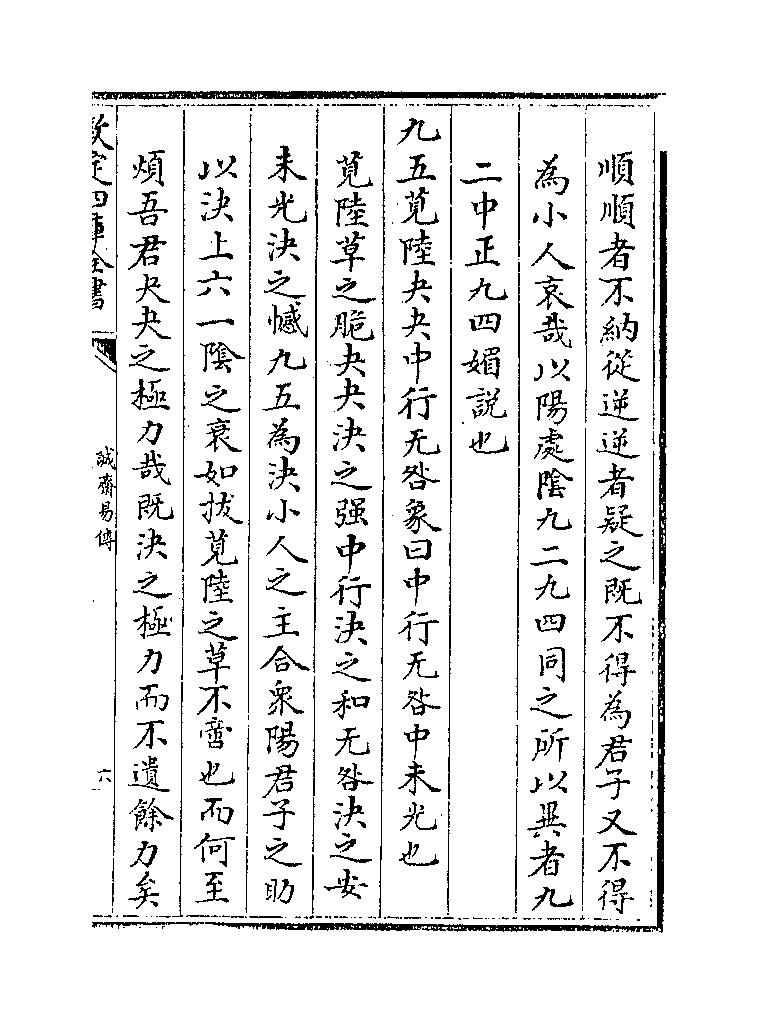 順順者不納從逆逆者疑之既不得為君子又不得
為小人哀哉以陽處隂九二九四同之所以異者九
二中正九四媚説也
九五莧陸夬夬中行无咎象曰中行无咎中未光也
莧陸草之脆夬夬決之强中行決之和无咎決之安
未光決之憾九五為決小人之主合衆陽君子之助
以決上六一隂之衰如拔莧陸之草不啻也而何至
煩吾君夬夬之極力哉既決之極力而不遺餘力矣
欽定四庫全書
誠齋易傳
六